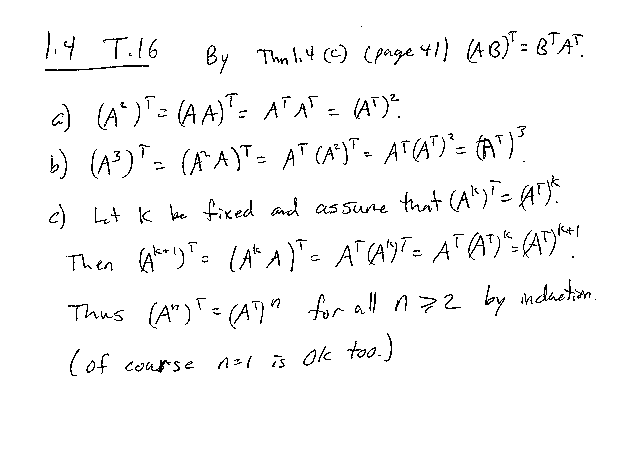 1.4 T.16 By Thm 1.4 (c) (page 41) (AB)ᵀ = BᵀAᵀ.
a) (A²)ᵀ = (AA)ᵀ = AᵀAᵀ = (Aᵀ)².
b) (A³)ᵀ = (A²A)ᵀ = Aᵀ(A²)ᵀ = Aᵀ(Aᵀ)² = (Aᵀ)³.
c) Let k be fixed and assume that (Aᵏ)ᵀ = (Aᵀ)ᵏ.
Then (Aᵏ⁺¹)ᵀ = (AᵏA)ᵀ = Aᵀ(Aᵏ)ᵀ = Aᵀ(Aᵀ)ᵏ = (Aᵀ)ᵏ⁺¹.
Thus (Aⁿ)ᵀ = (Aᵀ)ⁿ for all n ≥ 2 by induction.
(of course n=1 is Ok too.)